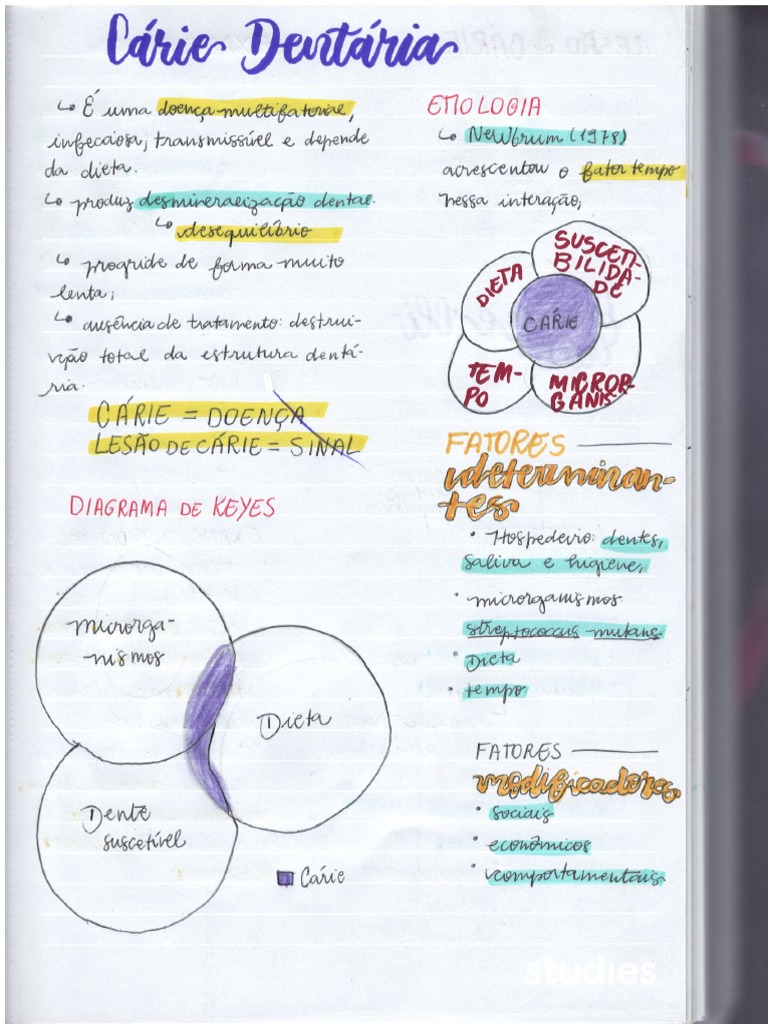 Cárie Dentária
↳ É uma doença multifatorial,
infecciosa, transmissível e depende
da dieta.
↳ produz desmineralização dental.
↳ desequilíbrio
↳ progride de forma muito
lenta;
↳ ausência de tratamento: destrui-
ção total da estrutura dentá-
ria.
CÁRIE = DOENÇA
LESÃO DE CÁRIE = SINAL
DIAGRAMA DE KEYES
microrga-
nismos
Dieta
Dente
suscetível
Cárie
ETIOLOGIA
↳ Newbrum (1978)
acrescentou o fator tempo
nessa interação;
SUSCETI-
BILIDA-
DE
DIETA
CÁRIE
TEM-
PO
MICROR-
GANIS
FATORES
determinan-
tes
• Hospedeiro: dentes,
saliva e higiene,
• microrganismos
streptococcus mutans
• Dieta
• tempo
FATORES
modificadores
• sociais
• econômicos
• comportamentais
studies